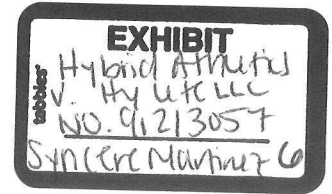 EXHIBIT
tabbies®
Hybrid Athletics
v. Hylete LLC
NO. 91213057
Syncere Martinez 6